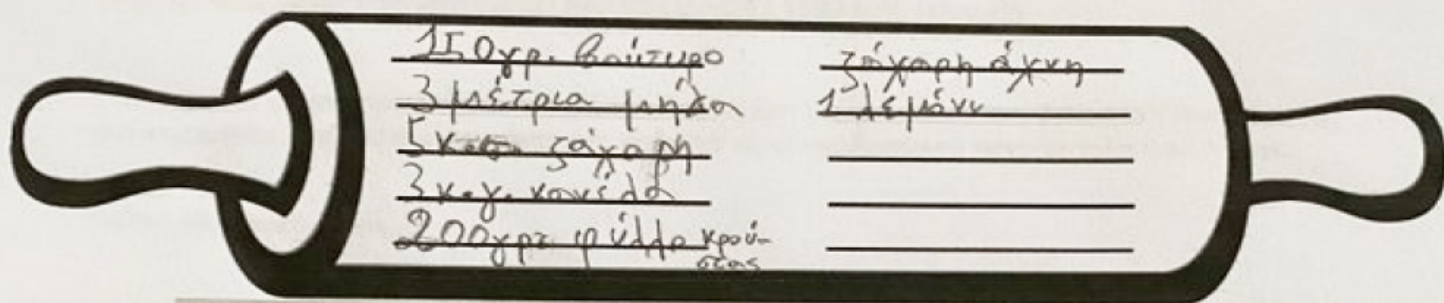 150γρ. βούτυρο
3 μέτρια μήλα
5 κ.σ. ζάχαρη
3 κ.γ. κανέλα
200γρ. φύλλο κρού-
στας
ζάχαρη άχνη
1 λεμόνι